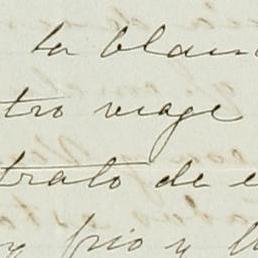 la blan
tro viage
trato de e
y frio y ll